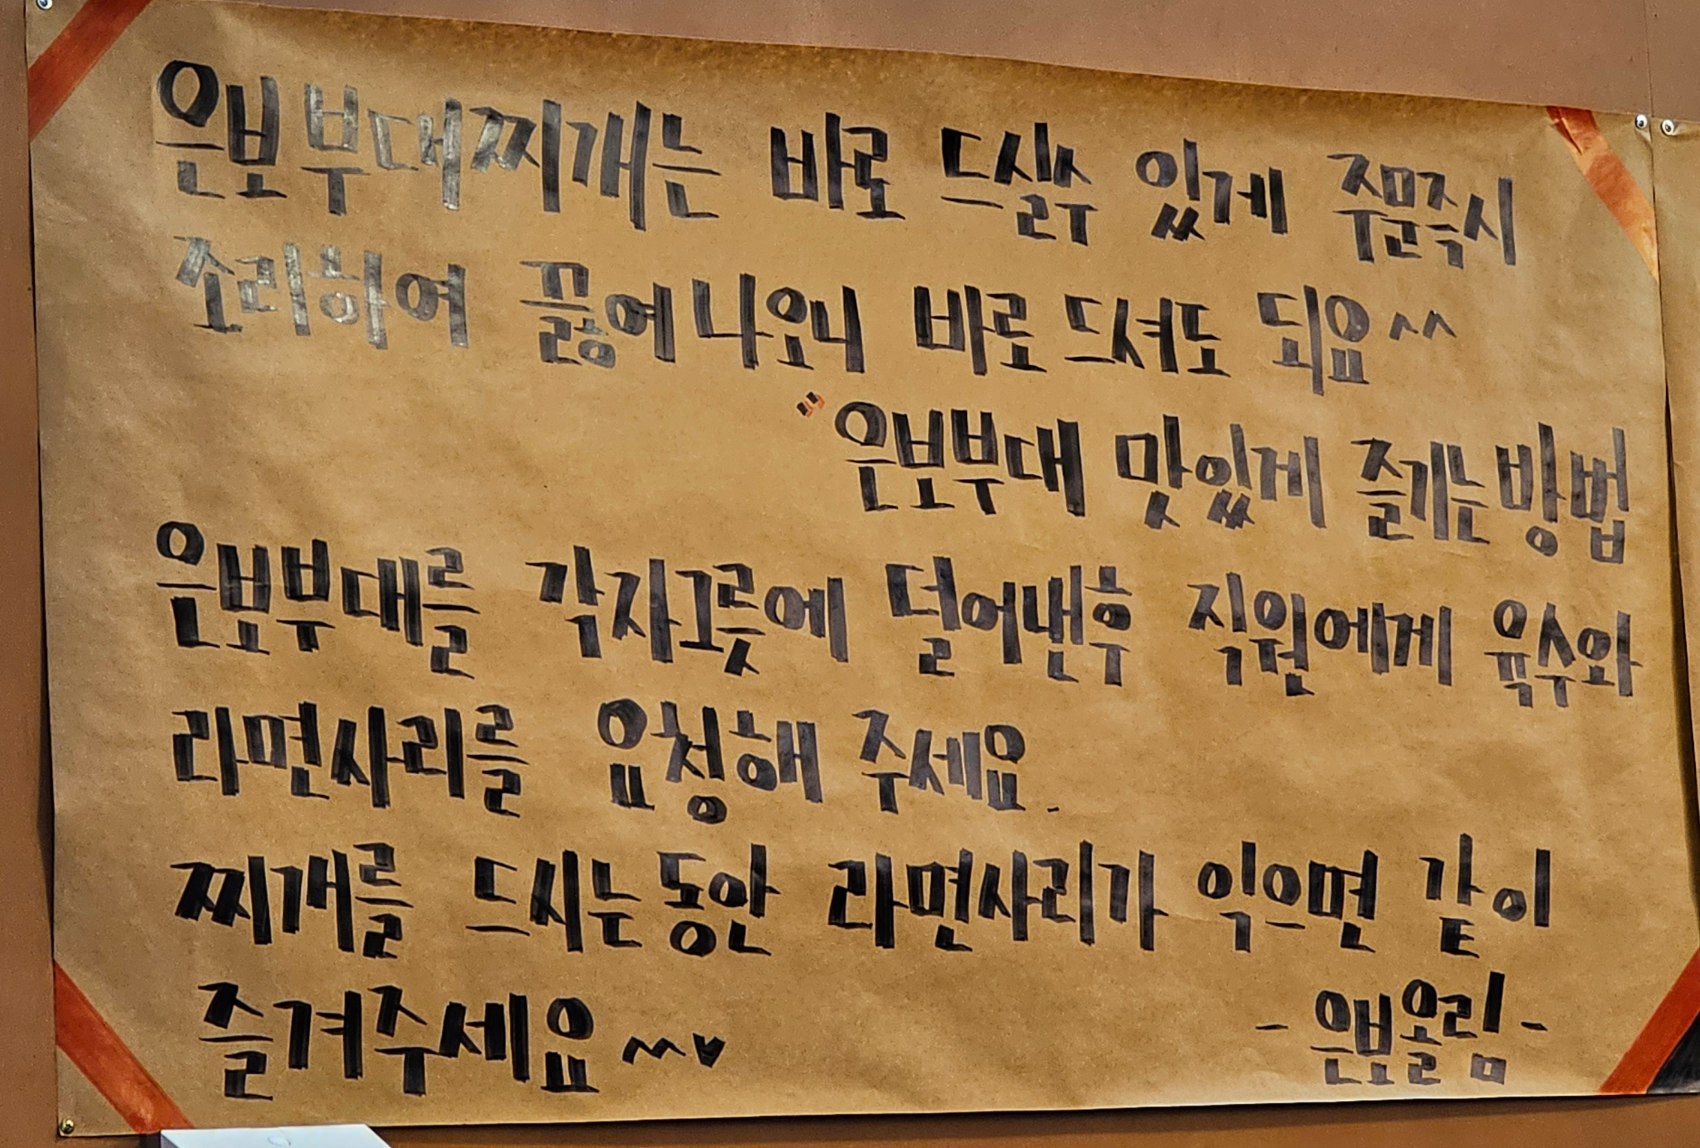 은보부대찌개는 바로 드실수 있게 주문즉시
조리하여 끓여나오니 바로 드셔도 되요^^
"은보부대 맛있게 즐기는방법
은보부대를 각자그릇에 덜어낸후 직원에게 육수와
라면사리를 요청해 주세요.
찌개를 드시는동안 라면사리가 익으면 같이
즐겨주세요~^^
-은보올림-